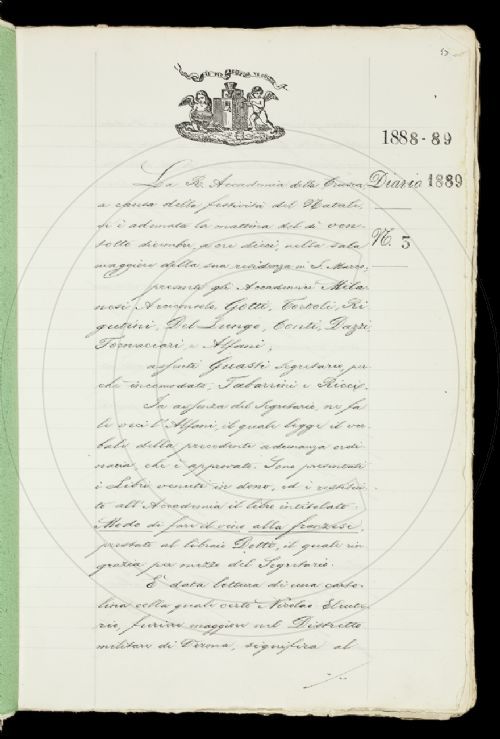 57
1888-89
Diario 1889
N. 3
La R. Accademia della Crusca
a causa delle festività del Natale,
si è adunata la mattina del dì ven-
totto dicembre, a ore dieci, nella sala
maggiore della sua residenza in S. Marco,
presenti gli Accademici Mila-
nesi, Arciconsolo, Gotti, Tortoli, Ri-
gutini, Del Lungo, Conti, Dazzi
Tornaciari, e Alfani;
assenti Guasti Segretario, per-
chè incomodato, Tabarrini e Ricci.
In assenza del Segretario, ne fa
le veci l'Alfani, il quale legge il ver-
bale della precedente adunanza ordi-
naria, che è approvato. Sono presentati
i Libri venuti in dono, ed è restitui-
to all'Accademia il libro intitolato
Modo di fare il vino alla franzese,
prestato al libraio Dotti, il quale rin-
grazia per mezzo del Segretario.
È data lettura di una carto-
lina colla quale certo Nicolao
furier maggiore nel Distretto
militare di Verona, significa al